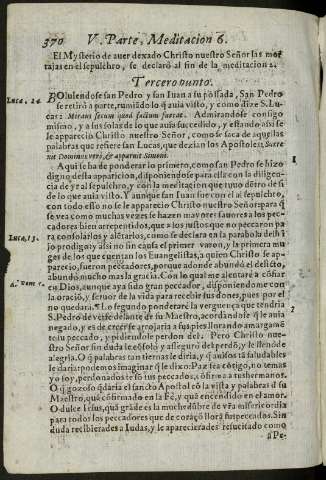 370 V. Parte, Meditacion 6.
El Mysterio de auer dexado Christo nuestro Señor las mor
tajas en el sepulchro, se declarò al fin de la meditacion 2.
Tercero punto.
Luca. 24.
BOluiendose san Pedro y san Iuan a su possada, San Pedro
se retirò a parte, rumiãdo lo q̃ auia visto, y como dize S. Lu-
cas: Mirans secum quod factum fuerat. Admirandose consigo
mismo, y a sus solas de lo que auia succedido, y estando assi se
le apparecio Christo nuestro Señor, como se saca de aquellas
palabras que refiere san Lucas, que dezian los Apostoles: Surre
xit Dominus verè, & apparuit Simoni.
Aqui se ha de ponderar lo primero, como san Pedro se hizo
digno desta apparicion, disponiendose para ella con la diligen-
cia de yr al sepulchro, y con la meditacion que tuuo dẽtro de si
de lo que auia visto. Y aunque san Iuan fue con el al sepulchro,
con todo esso no se le aparecio Christo nuestro Señor: para q̃
se vea como muchas vezes se hazen mayores fauores a los pec-
cadores bien arrepentidos, que a los justos que no peccaron pa
ra consolarlos y alẽtarlos, como se declara en la parabola del hi
Luca, 15.
jo prodigo y assi no sin causa el primer varon, y la primera mu
ger de los que cuentan los Euangelistas, a quien Christo se ap-
parecio, fueron peccadores, porque adonde abundò el delicto,
abundò mucho mas la gracia. Con lo qual me alentarè a cõfiar
en Dios, aunque aya sido gran peccador, disponiendome con
la oracion, y feruor de la vida para recebir sus dones, pues por el
no quedarà. Lo segundo ponderarè la verguença que tendria
S. Pedro de verse delante de su Maestro, acordãdose q̃ le auia
negado, y es de creer se arrojaria a sus pies llorando amargamẽ
te su peccado, y pidiendole perdon del: Pero Christo nue-
stro Señor sin duda le cõsolò y assegurò del perdõ, y le llenò de
alegria. O q̃ palabras tan tiernas le diria, y q̃ auisos tã saludables
le daria: podemos imaginar q̃ le dixo: Paz sea cõtigo, no temas
yo soy, perdonados te sõ tus peccados, cõfirma a tus hermanos.
O q̃ gozoso q̃daria el sancto Apostol cõ la vista y palabras d̃ su
Maestro, quã cõfirmado en la Fè, y quã encendido en el amor.
O dulce Iesus, quã grãde es la muchedũbre de vr̃a misericordia
para todos los peccadores que de coraçõ llorã sus peccados. Sin
duda recibierades a Iudas, y le aparecierades resucitado como
a Pe-